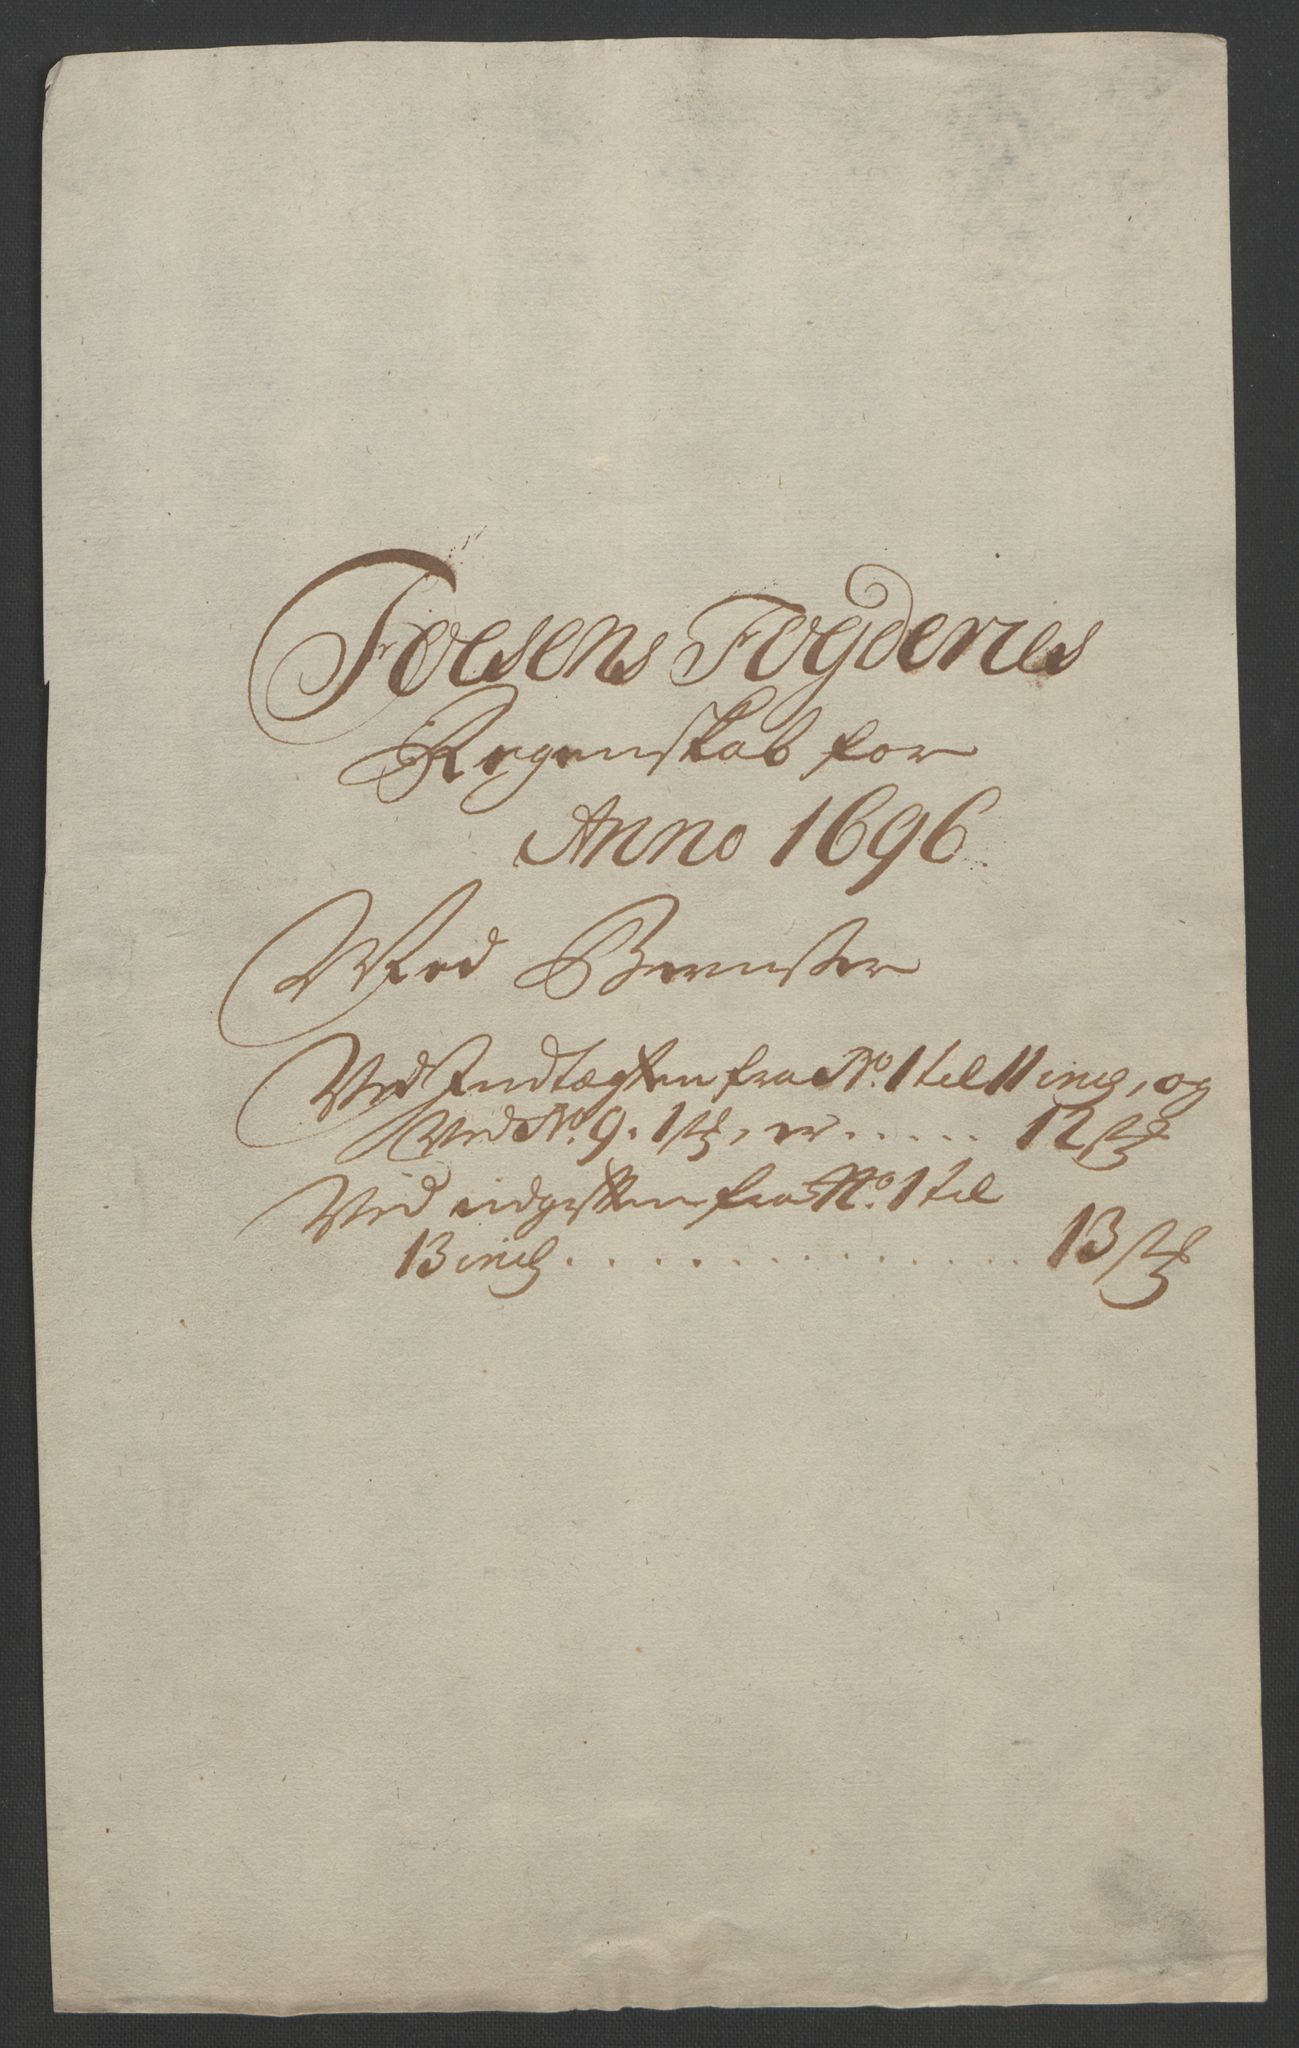 Foesens Fogderies
Regenskab for
Anno 1696
Med Beviister
Ved Indtægten fra No. 1 til 11 incl, og
Ved No. 9. 1 st, er . . . . . 12 st
Ved udgiften fra No. 1 til
13 incl . . . . . . . . . . . . . . . 13 st